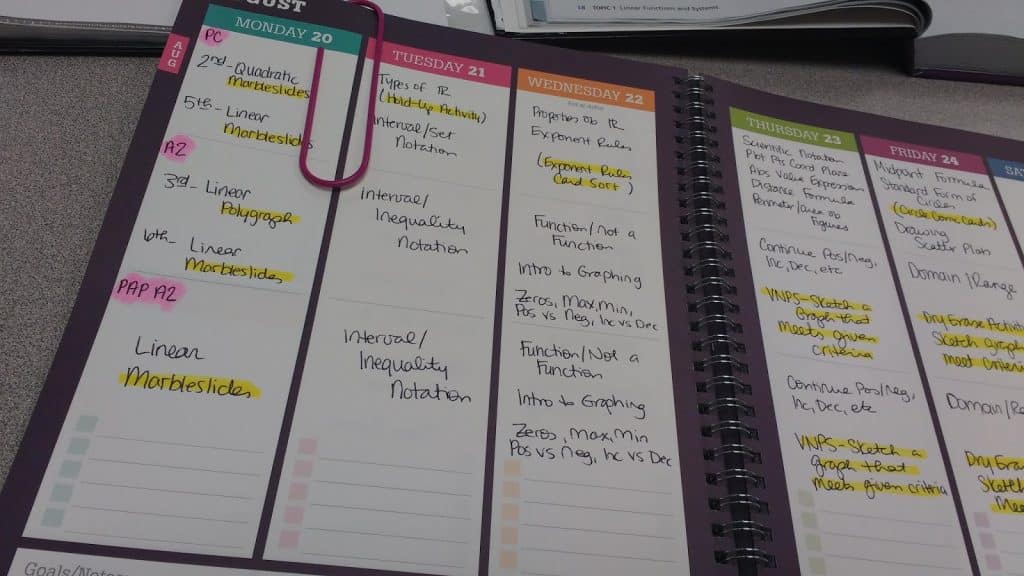 18 TOPIC 1 Linear Functions and Systems
AUG
MONDAY 20
PC
2nd-Quadratic
Marbleslides
5th-Linear
Marbleslides
A2
3rd-Linear
Polygraph
6th-Linear
Marbleslides
PAP A2
Linear
Marbleslides
TUESDAY 21
Types of IR
(Hold-Up Activity)
Interval/Set
Notation
Interval/
Inequality
Notation
Interval/
Inequality
Notation
WEDNESDAY 22
Properties of IR
Exponent Rules
(Exponent Rules
Card Sort)
Function/Not a
Function
Intro to Graphing
Zeros, Max, Min,
Pos vs Neg, Inc vs Dec
Function/Not a
Function
Intro to Graphing
Zeros, Max, Min
Pos vs Neg, Inc vs Dec
THURSDAY 23
Scientific Notation
Plot Pts Coord Plane
Abs Value Expression
Distance Formula
Perimeter/Area of
Figures
Continue Pos/Neg,
Inc, Dec, etc
VNPS-Sketch a
graph that
meets given
criteria
Continue Pos/Neg,
Inc, Dec, etc
VNPS-Sketch a
graph that
meets given criteria
FRIDAY 24
Midpoint Formula
Standard Form of
Circles
Drawing
Scatter Plots
Domain/Range
Dry Erase
Sketch graph
meet
Dry
Sketch
Goals/Notes